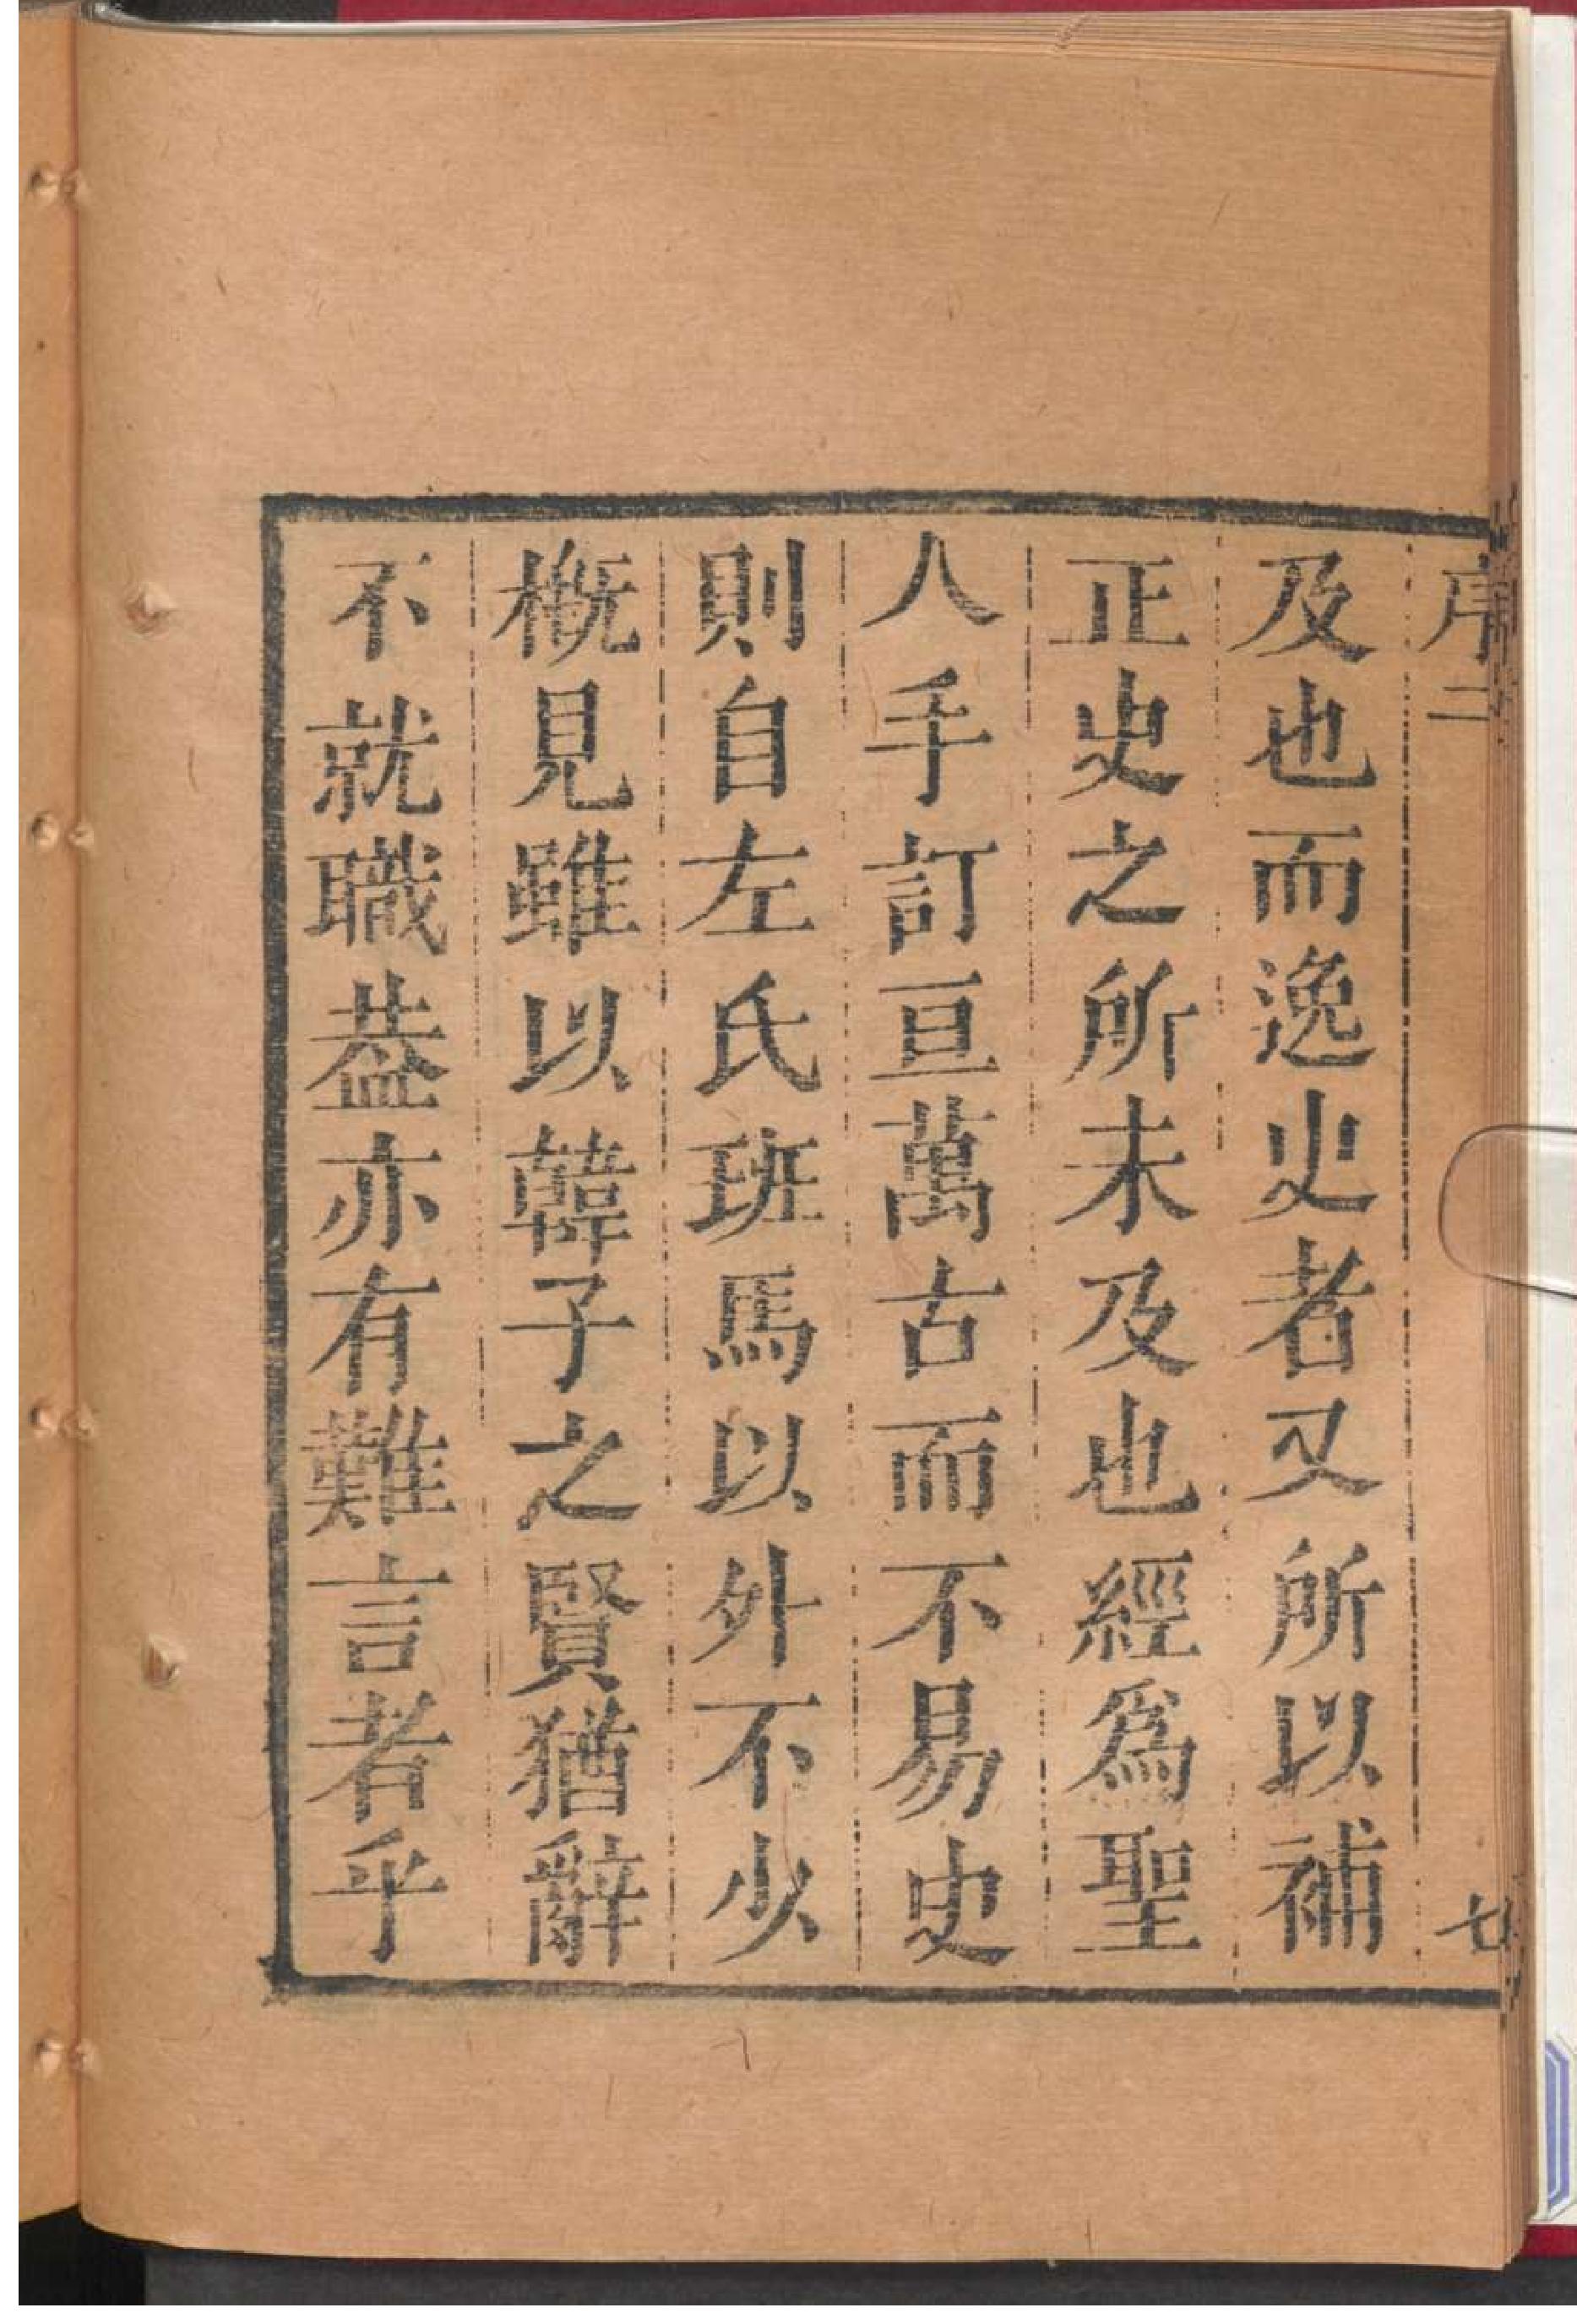 序二
七
及也而逸史者又所以補
正史之所未及也經爲聖
人手訂亘萬古而不易史
則自左氏班馬以外不少
概見雖以韓子之賢猶辭
不就職葢亦有難言者乎